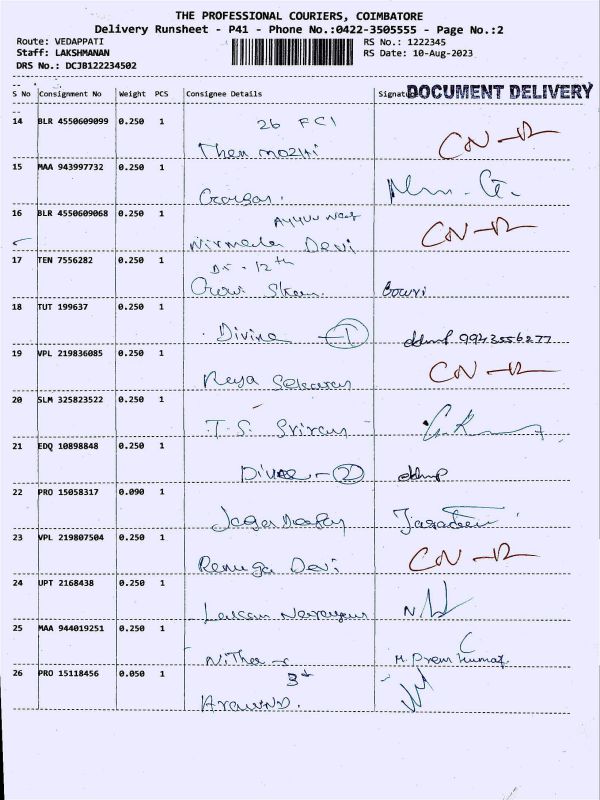 THE PROFESSIONAL COURIERS, COIMBATORE
Delivery Runsheet - P41 - Phone No.:0422-3505555 - Page No.:2
Route: VEDAPPATI
Staff: LAKSHMANAN
DRS No.: DCJB122234502
RS No.: 1222345
RS Date: 10-Aug-2023
DOCUMENT DELIVERY
S No Consignment No Weight PCS Consignee Details Signature
14 BLR 4550609099 0.250 1
26 FCI
Then mozhi CN-R
15 MAA 943997732 0.250 1
16 BLR 4550609068 0.250 1
Nirmala Devi CN-R
17 TEN 7556282 0.250 1
12th
Gowri
18 TUT 199637 0.250 1
Divine -1 9943556277
19 VPL 219836085 0.250 1
Sekaran CN-R
20 SLM 325823522 0.250 1
T.S. Sriram
21 EDQ 10898848 0.250 1
Divine -2
22 PRO 15058317 0.090 1
23 VPL 219807504 0.250 1
Renuga Devi CN-R
24 UPT 2168438 0.250 1
25 MAA 944019251 0.250 1
M. Prem Kumar
26 PRO 15118456 0.050 1
Aravind.